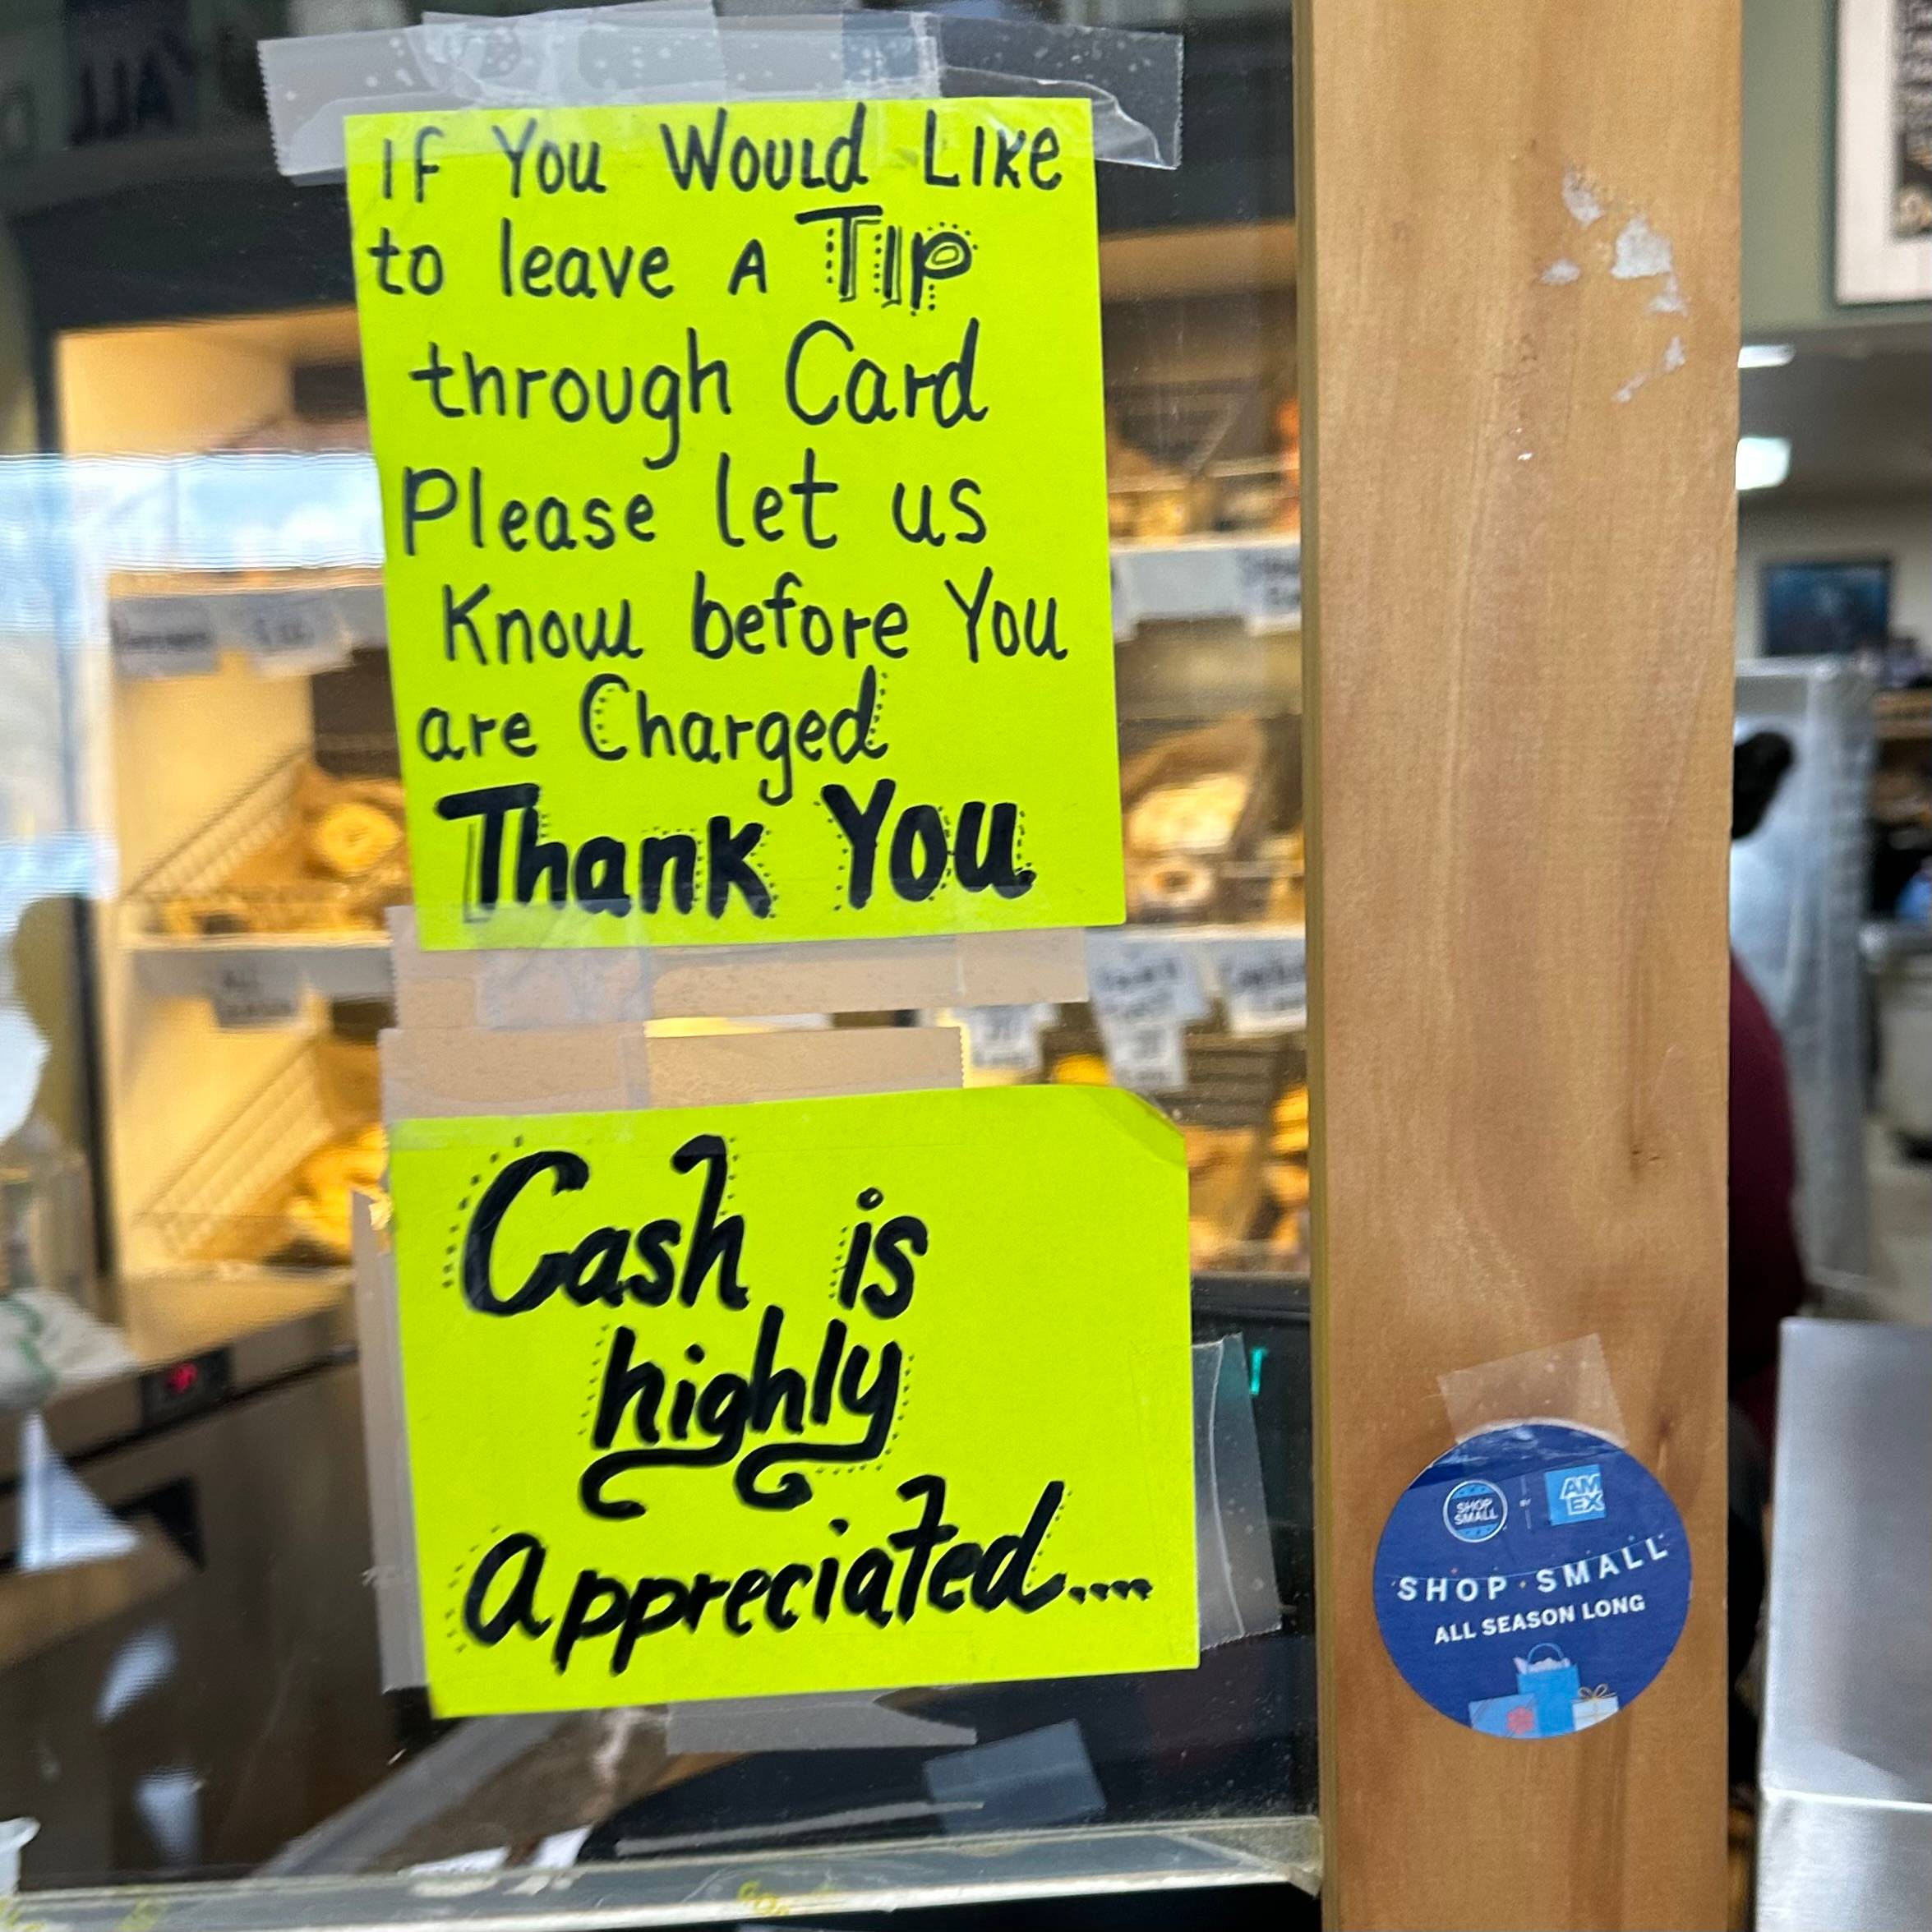 IF You Would Like
to leave A TIP
through Card
Please let us
Know before You
are Charged
Thank You
Cash is
highly
Appreciated....
SHOP
SMALL
BY
AM
EX
SHOP SMALL
ALL SEASON LONG